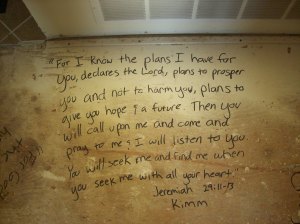 "For I know the plans I have for
you, declares the Lord, plans to prosper
you and not to harm you, plans to
give you hope & a future. Then you
will call upon me and come and
pray to me & I will listen to you
You will seek me and find me when
you seek me with all your heart."
Jeremiah 29:11-13
Kimm